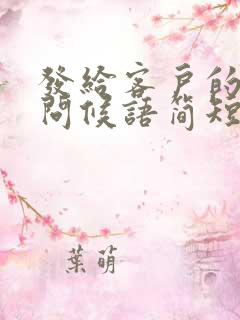 發給客戶的
問候語簡短
葉萌